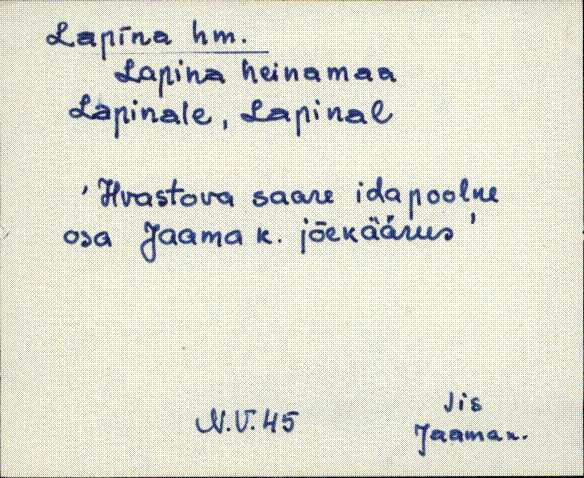 Lapina hm.
Lapina heinamaa
Lapinale, Lapinal
'Hvastova saare idapoolne
osa Jaama k. jõekäärus'
N.V. 45
Jis
Jaama k.